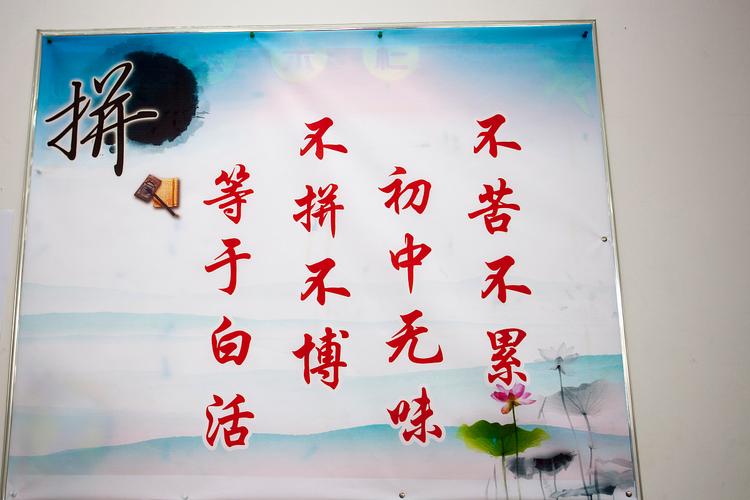 拼
不苦不累
初中无味
不拼不博
等于白活